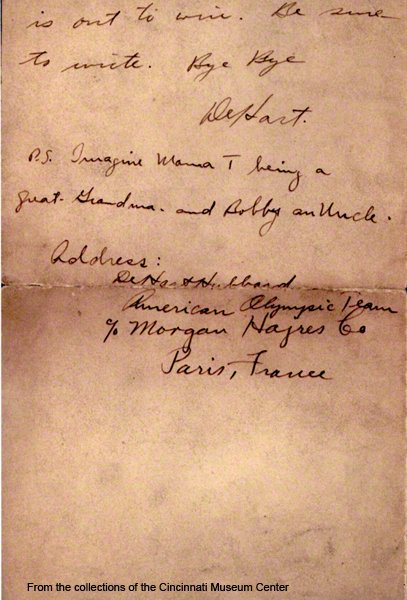 is out to win. Be sure
to write. Bye Bye
DeHart.
P.S. Imagine Mama T being a
great-Grandma. and Bobby an Uncle.
Address:
DeHart Hubbard
American Olympic Team
% Morgan Hajres Co
Paris, France
From the collections of the Cincinnati Museum Center